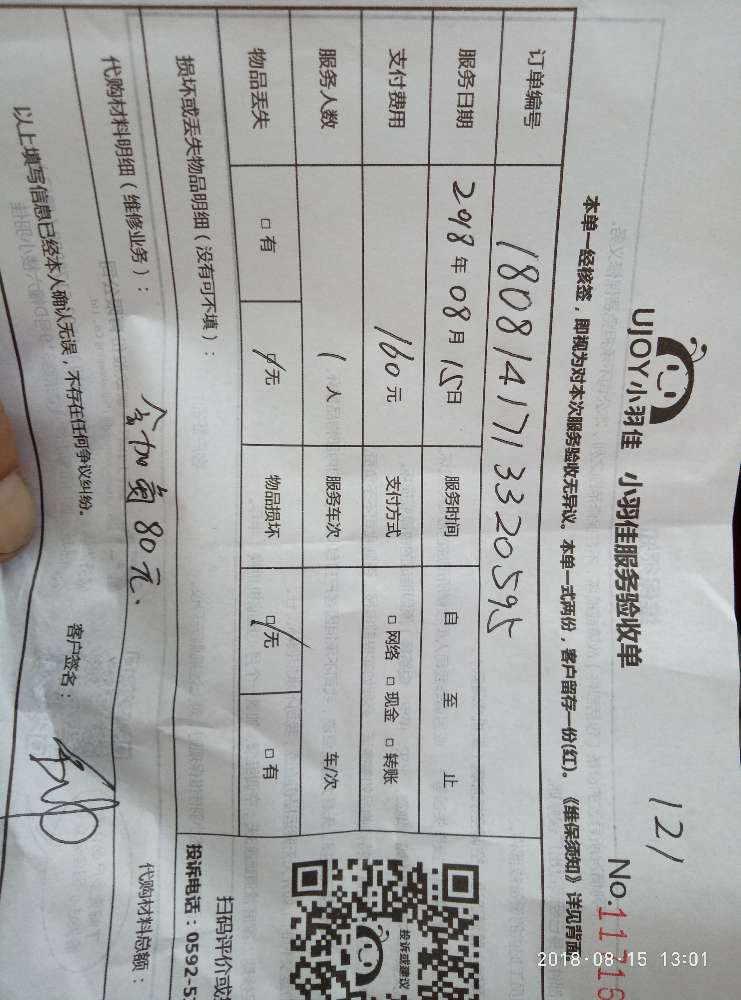 121
UJOY小羽佳 小羽佳服务验收单
No.11716
本单一经核签，即视为对本次服务验收无异议。本单一式两份，客户留存一份(红)。《维保须知》详见背面
订单编号 1808141713320595
服务日期 2018年08月15日 服务时间 自 至 止
支付费用 160元 支付方式 □网络 □现金 □转账
服务人数 1人 服务车次 车/次
物品丢失 □有 □无 物品损坏 □无 □有
损坏或丢失物品明细（没有可不填）：
代购材料明细（维修业务）： 含加氟80元、
代购材料总额：
以上填写信息已经本人确认无误，不存在任何争议纠纷。
客户签名：
投诉或建议
扫码评价或
投诉电话：0592-5
2018-08-15 13:01